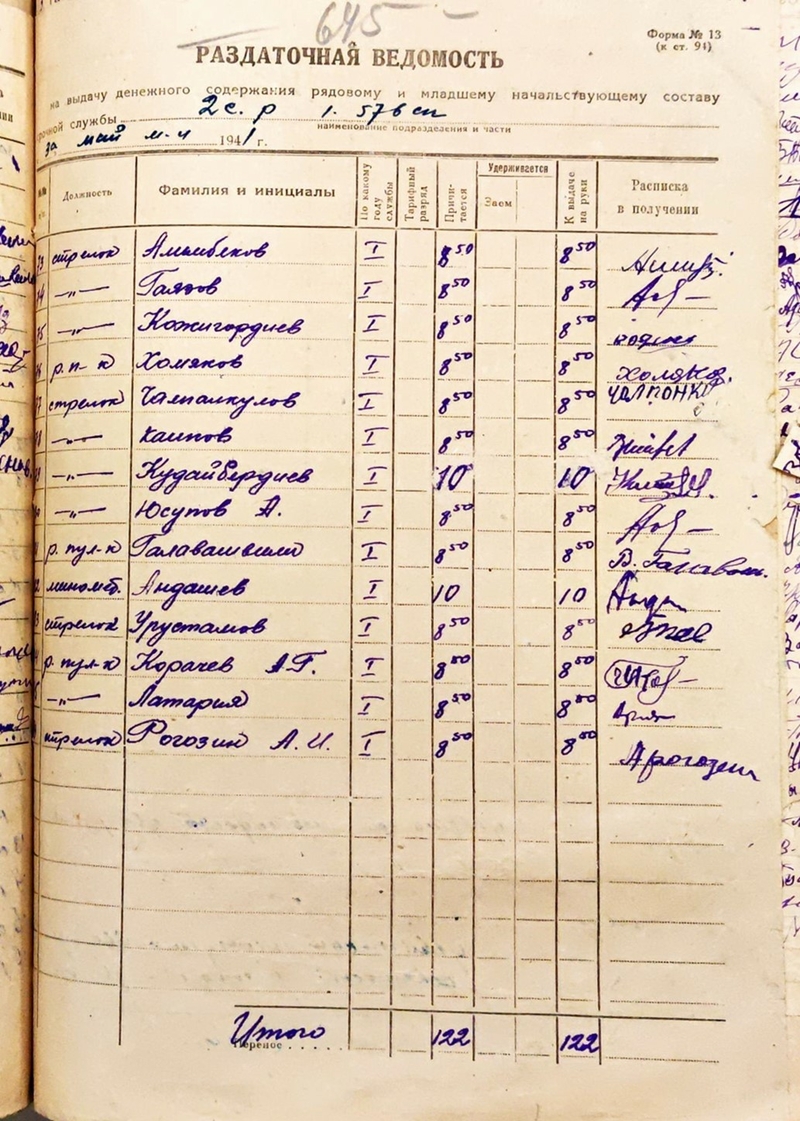 645
Форма № 13
(к ст. 94)
РАЗДАТОЧНАЯ ВЕДОМОСТЬ
на выдачу денежного содержания рядовому и младшему начальствующему составу
срочной службы 2 с. р 1. 576 сп
наименование подразделения и части
за май м-ц 1941 г.
Должность Фамилия и инициалы По какому году службы Тарифный разряд Причитается Удерживается Заем К выдаче на руки Расписка в получении
стрелок Амымбеков I 8 50 8 50
—„— Гаязов I 8 50 8 50
—„— Кожигордиев I 8 50 8 50
р. п- к Хомяков I 8 50 8 50 Хомяков.
стрелок Чалпанкулов I 8 50 8 50 ЧАЛПОНК
—„— Каипов I 8 50 8 50
—„— Кудайбердиев I 10 10
—„— Юсупов А. I 8 50 8 50
р. пул-к Галавашвили I 8 50 8 50 В. Галаваш.
миномет. Андашев I 10 10
стрелок Урустамов I 8 50 8 50
р. пул-к Корачев АГ. I 8 50 8 50
—„— Латария I 8 50 8 50
стрелок Рогозин А. И. I 8 50 8 50 Арогозин
Итого 122 122
Перенос . . . . .